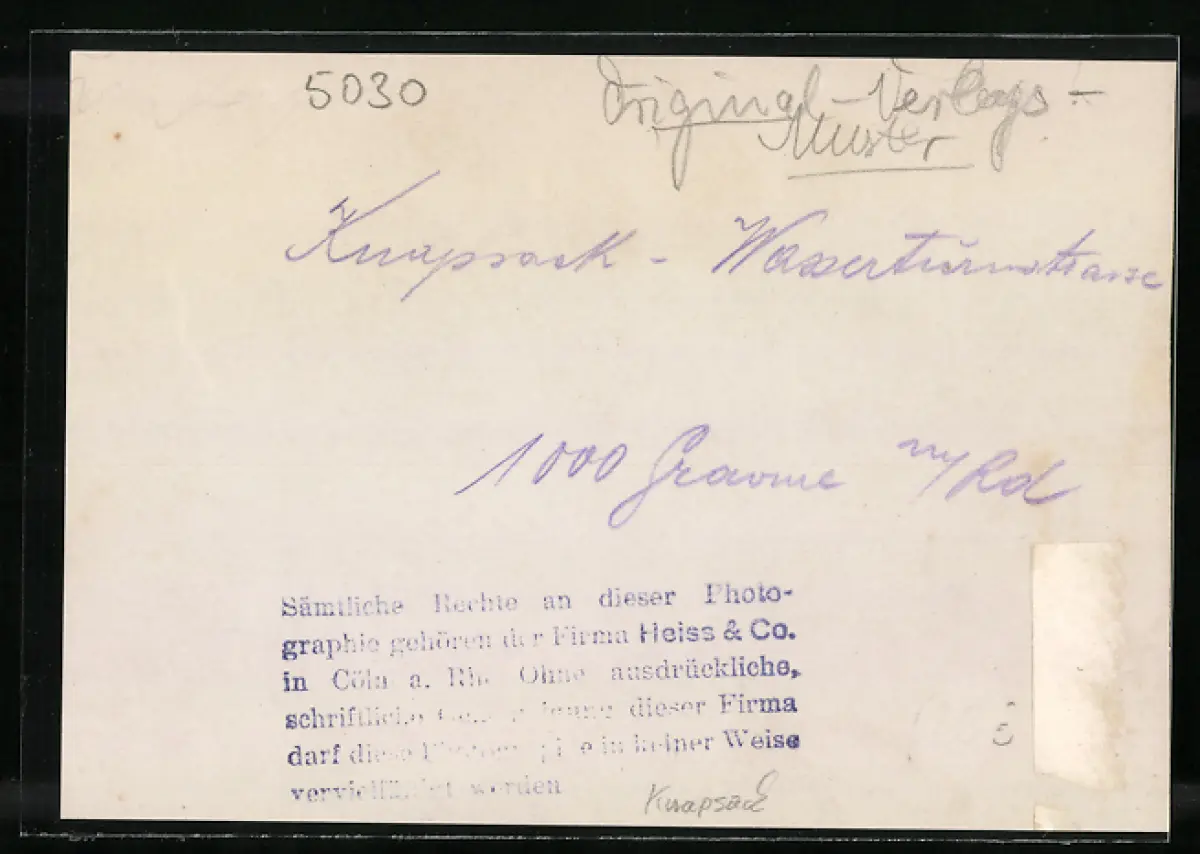 5030
Original-Verlags-
Muster
Knapsack - Wasserturmstrasse
1000 Gravure m/Rd
Sämtliche Rechte an dieser Photo-
graphie gehören der Firma Heiss & Co.
in Cöln a. Rh. Ohne ausdrückliche,
schriftliche dieser Firma
darf diese in keiner Weise
vervielfältigt werden
5
Knapsack